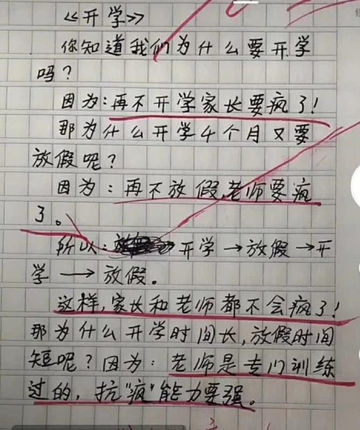 《开学》
你知道我们为什么要开学
吗？
因为：再不开学家长要疯了！
那为什么开学4个月又要
放假呢？
因为：再不放假，老师要疯
了。
所以：开学→放假→开
学→放假。
这样，家长和老师都不会疯了！
那为什么开学时间长，放假时间
短呢？因为：老师是专门训练
过的，抗"疯"能力要强。